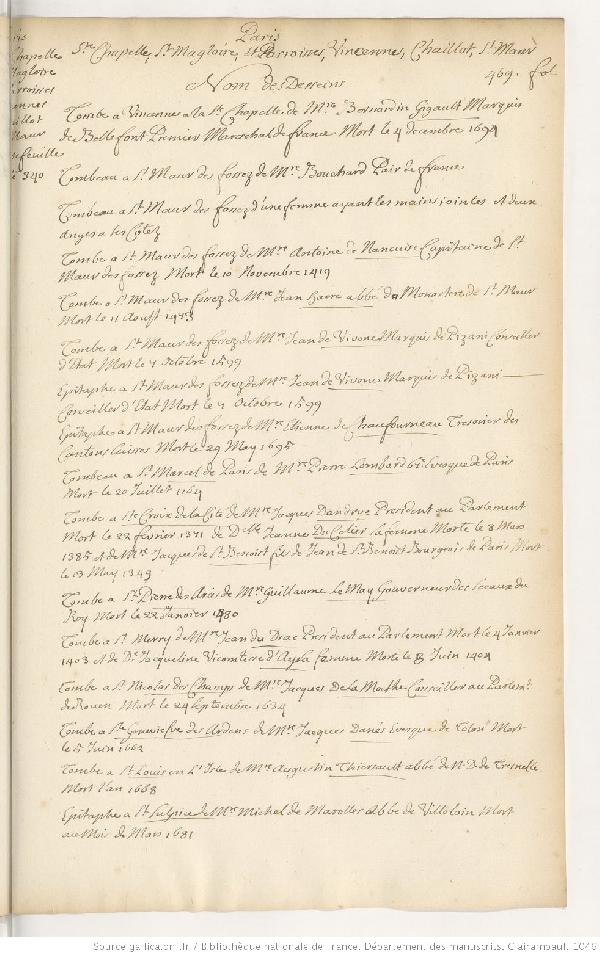 Paris
Ste Chapelle, St Magloire, St Perroines, Vincennes, Chaillot, St Maur
469. fol
Nom des Desseins
Tombe a Vincennes a la Ste Chapelle de Mre Bernardin Gigault Marquis
de Bellefont Premier Mareschal de france Mort le 4 decembre 1694
Tombeau a St Maur des fossez de Mre Bouchard Pair de france
Tombeau a St Maur des fossez d'une femme ayant les mains jointes et deux
anges a ses Cotez
Tombe a St Maur des fossez de Mre Antoine de Capitaine de St
Maur des fossez Mort le 10 Novembre 1419
Tombe a St Maur des fossez de Mre Jean abbé du Monastere de St Maur
Mort le 11 Aoust
Tombe a St Maur des fossez de Mre Jean de Vivone Marquis de Pizani Conseiller
d'Etat Mort le 7 Octobre 1599
Epitaphe a St Maur des fossez de Mre Jean de Vivone Marquis de Pizani
Conseiller d'Etat Mort le 7 Octobre 1599
Epitaphe a St Maur des fossez de Mre Etienne de Chaufourneau Tresorier des
Cantons Mort le 29 May 1695
Tombeau a St Marcel de Paris de Mre Pierre Lombard Evesque de Paris
Mort le 20 Juillet 1164
Tombe a Ste Croix de la Cité de Mre Jacques Dandrye President au Parlement
Mort le 22 février 1371 de Delle Jeanne Du Celier sa femme Morte le 8 Mars
1385 et de Mre Jacques de St Benoist fils de Jean de St Benoist Bourgeois de Paris Mort
le 13 May 1349
Tombe a St Pierre des Arcis de Mre Guillaume le May Gouverneur des du
Roy Mort le 22 Janvier 1480
Tombe a St Merry de Mre Jean du Drac President au Parlement Mort le 4 Janvier
1403 et de De Jacqueline Vicomtesse d'Ay sa femme Morte le 8 Juin 1404
Tombe a St Nicolas des Champs de Mre Jacques de la Mothe Conseiller au Parlemt
de Rouen Mort le 24 Septembre 1634
Tombe a Ste Genevieve des Ardens de Mre Jacques Danés Evesque de Tolon Mort
le 5 Juin 1662
Tombe a St Louis en l'Isle de Mre Augustin Thierrault abbé de N.D. de Tresnelle
Mort l'an 1668
Epitaphe a St Sulpice de Mre Michel de Marolles Abbé de Villeloin Mort
au Mois de Mars 1681
Source gallica.bnf.fr / Bibliothèque nationale de France. Département des manuscrits. Clairambault. 1046